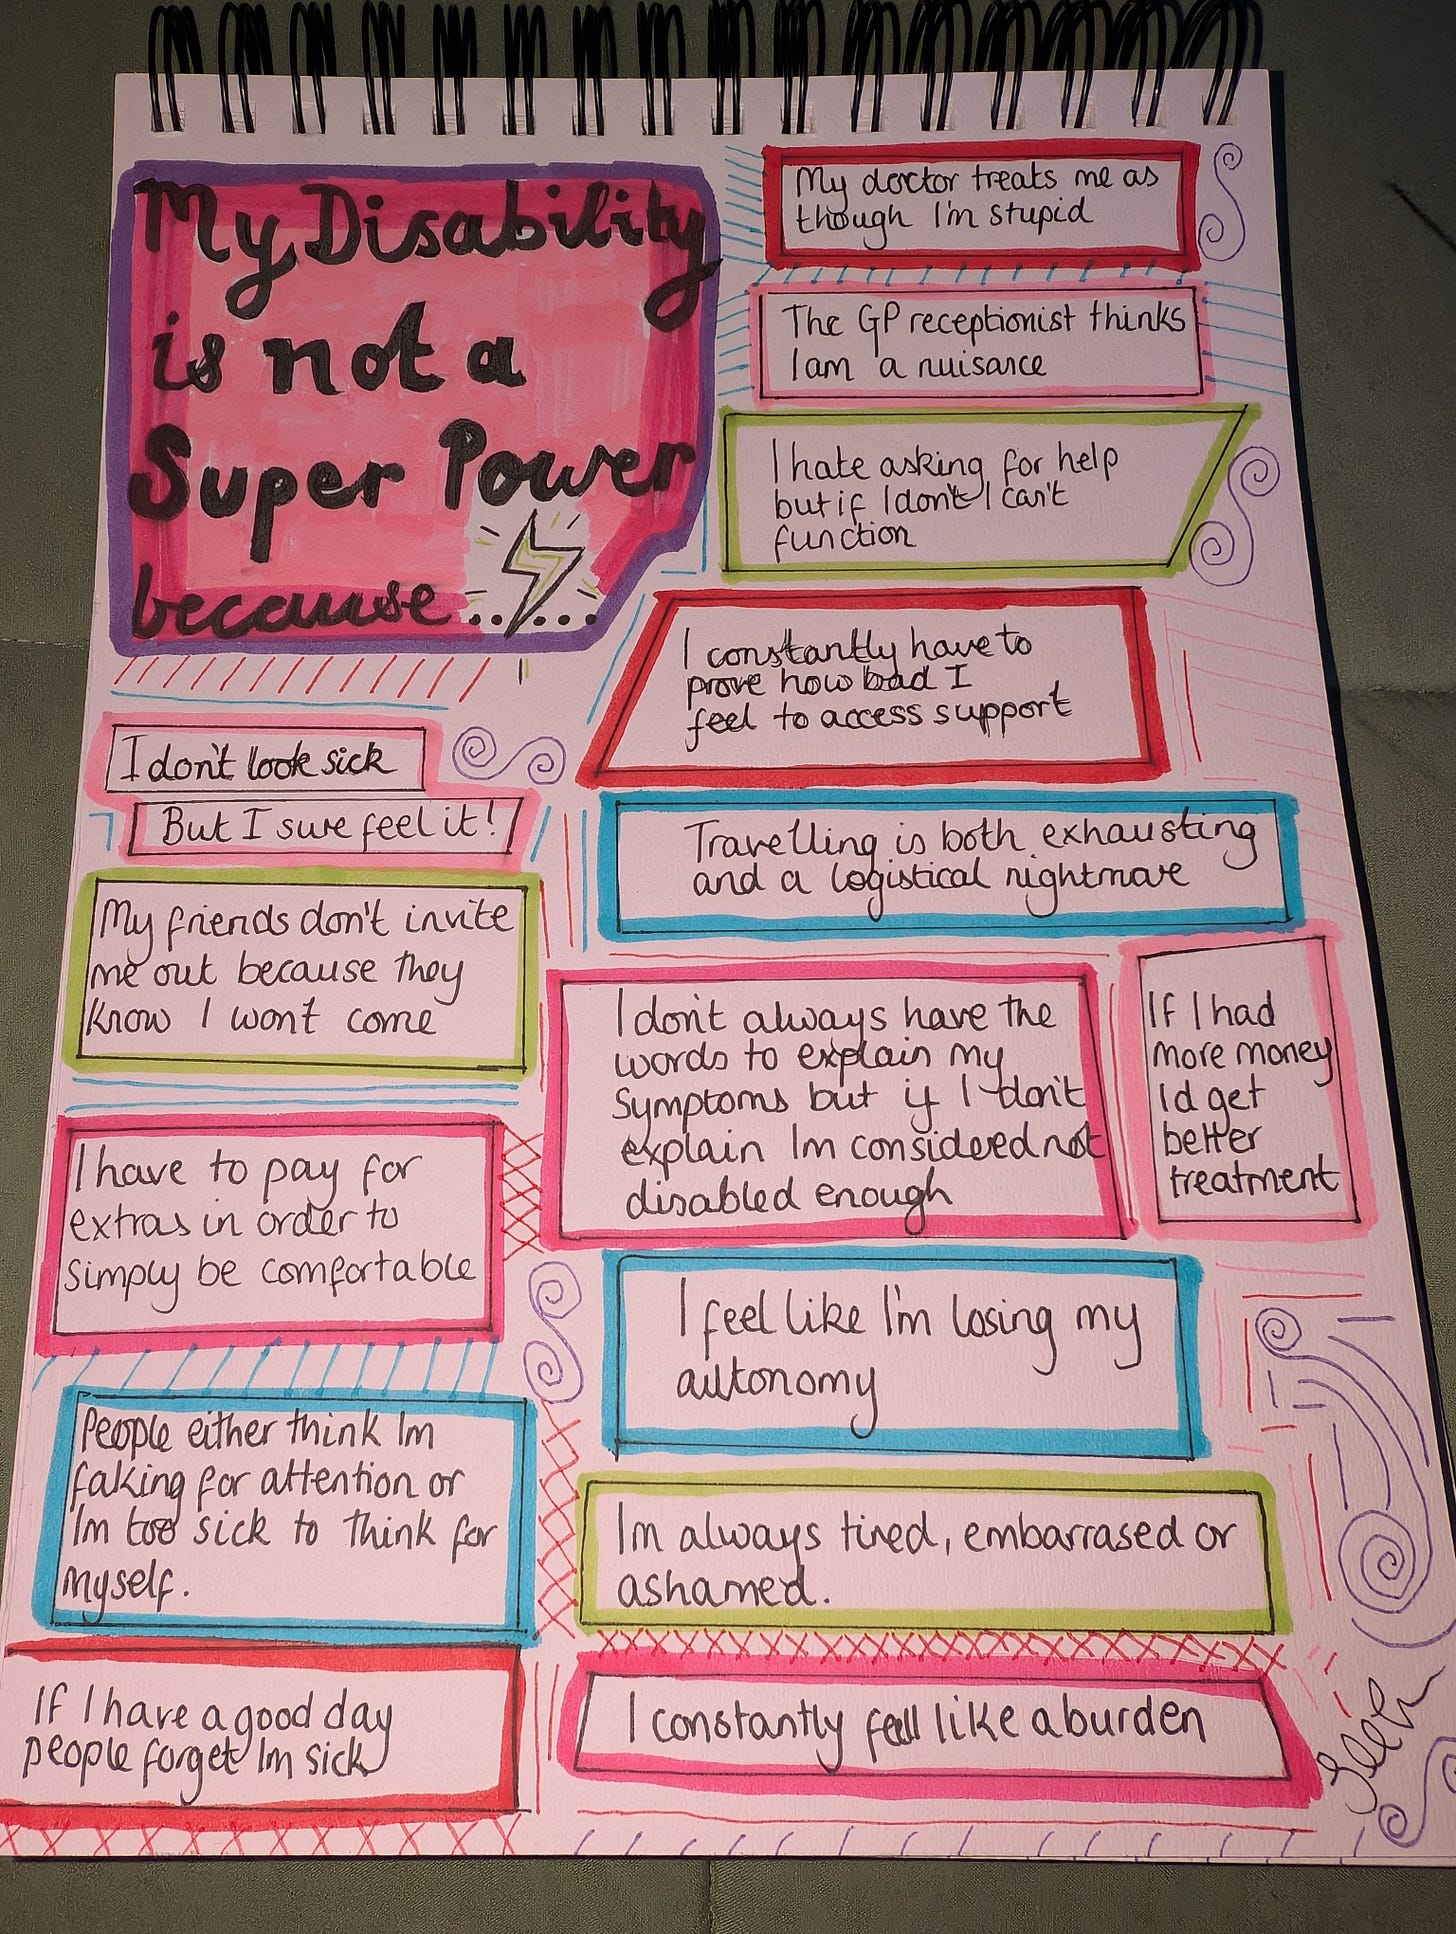 My Disability
is not a
Super Power
because......
I don't look sick
But I sure feel it!
My friends don't invite
me out because they
know I wont come
I have to pay for
extras in order to
simply be comfortable
People either think Im
faking for attention or
Im too sick to think for
myself.
If I have a good day
people forget Im sick
My doctor treats me as
though I'm stupid
The GP receptionist thinks
I am a nuisance
I hate asking for help
but if I don't I can't
function
I constantly have to
prove how bad I
feel to access support
Travelling is both exhausting
and a logistical nightmare
I don't always have the
words to explain my
symptoms but if I don't
explain Im considered not
disabled enough
If I had
more money
Id get
better
treatment
I feel like I'm losing my
autonomy
Im always tired, embarrased or
ashamed.
I constantly feel like a burden